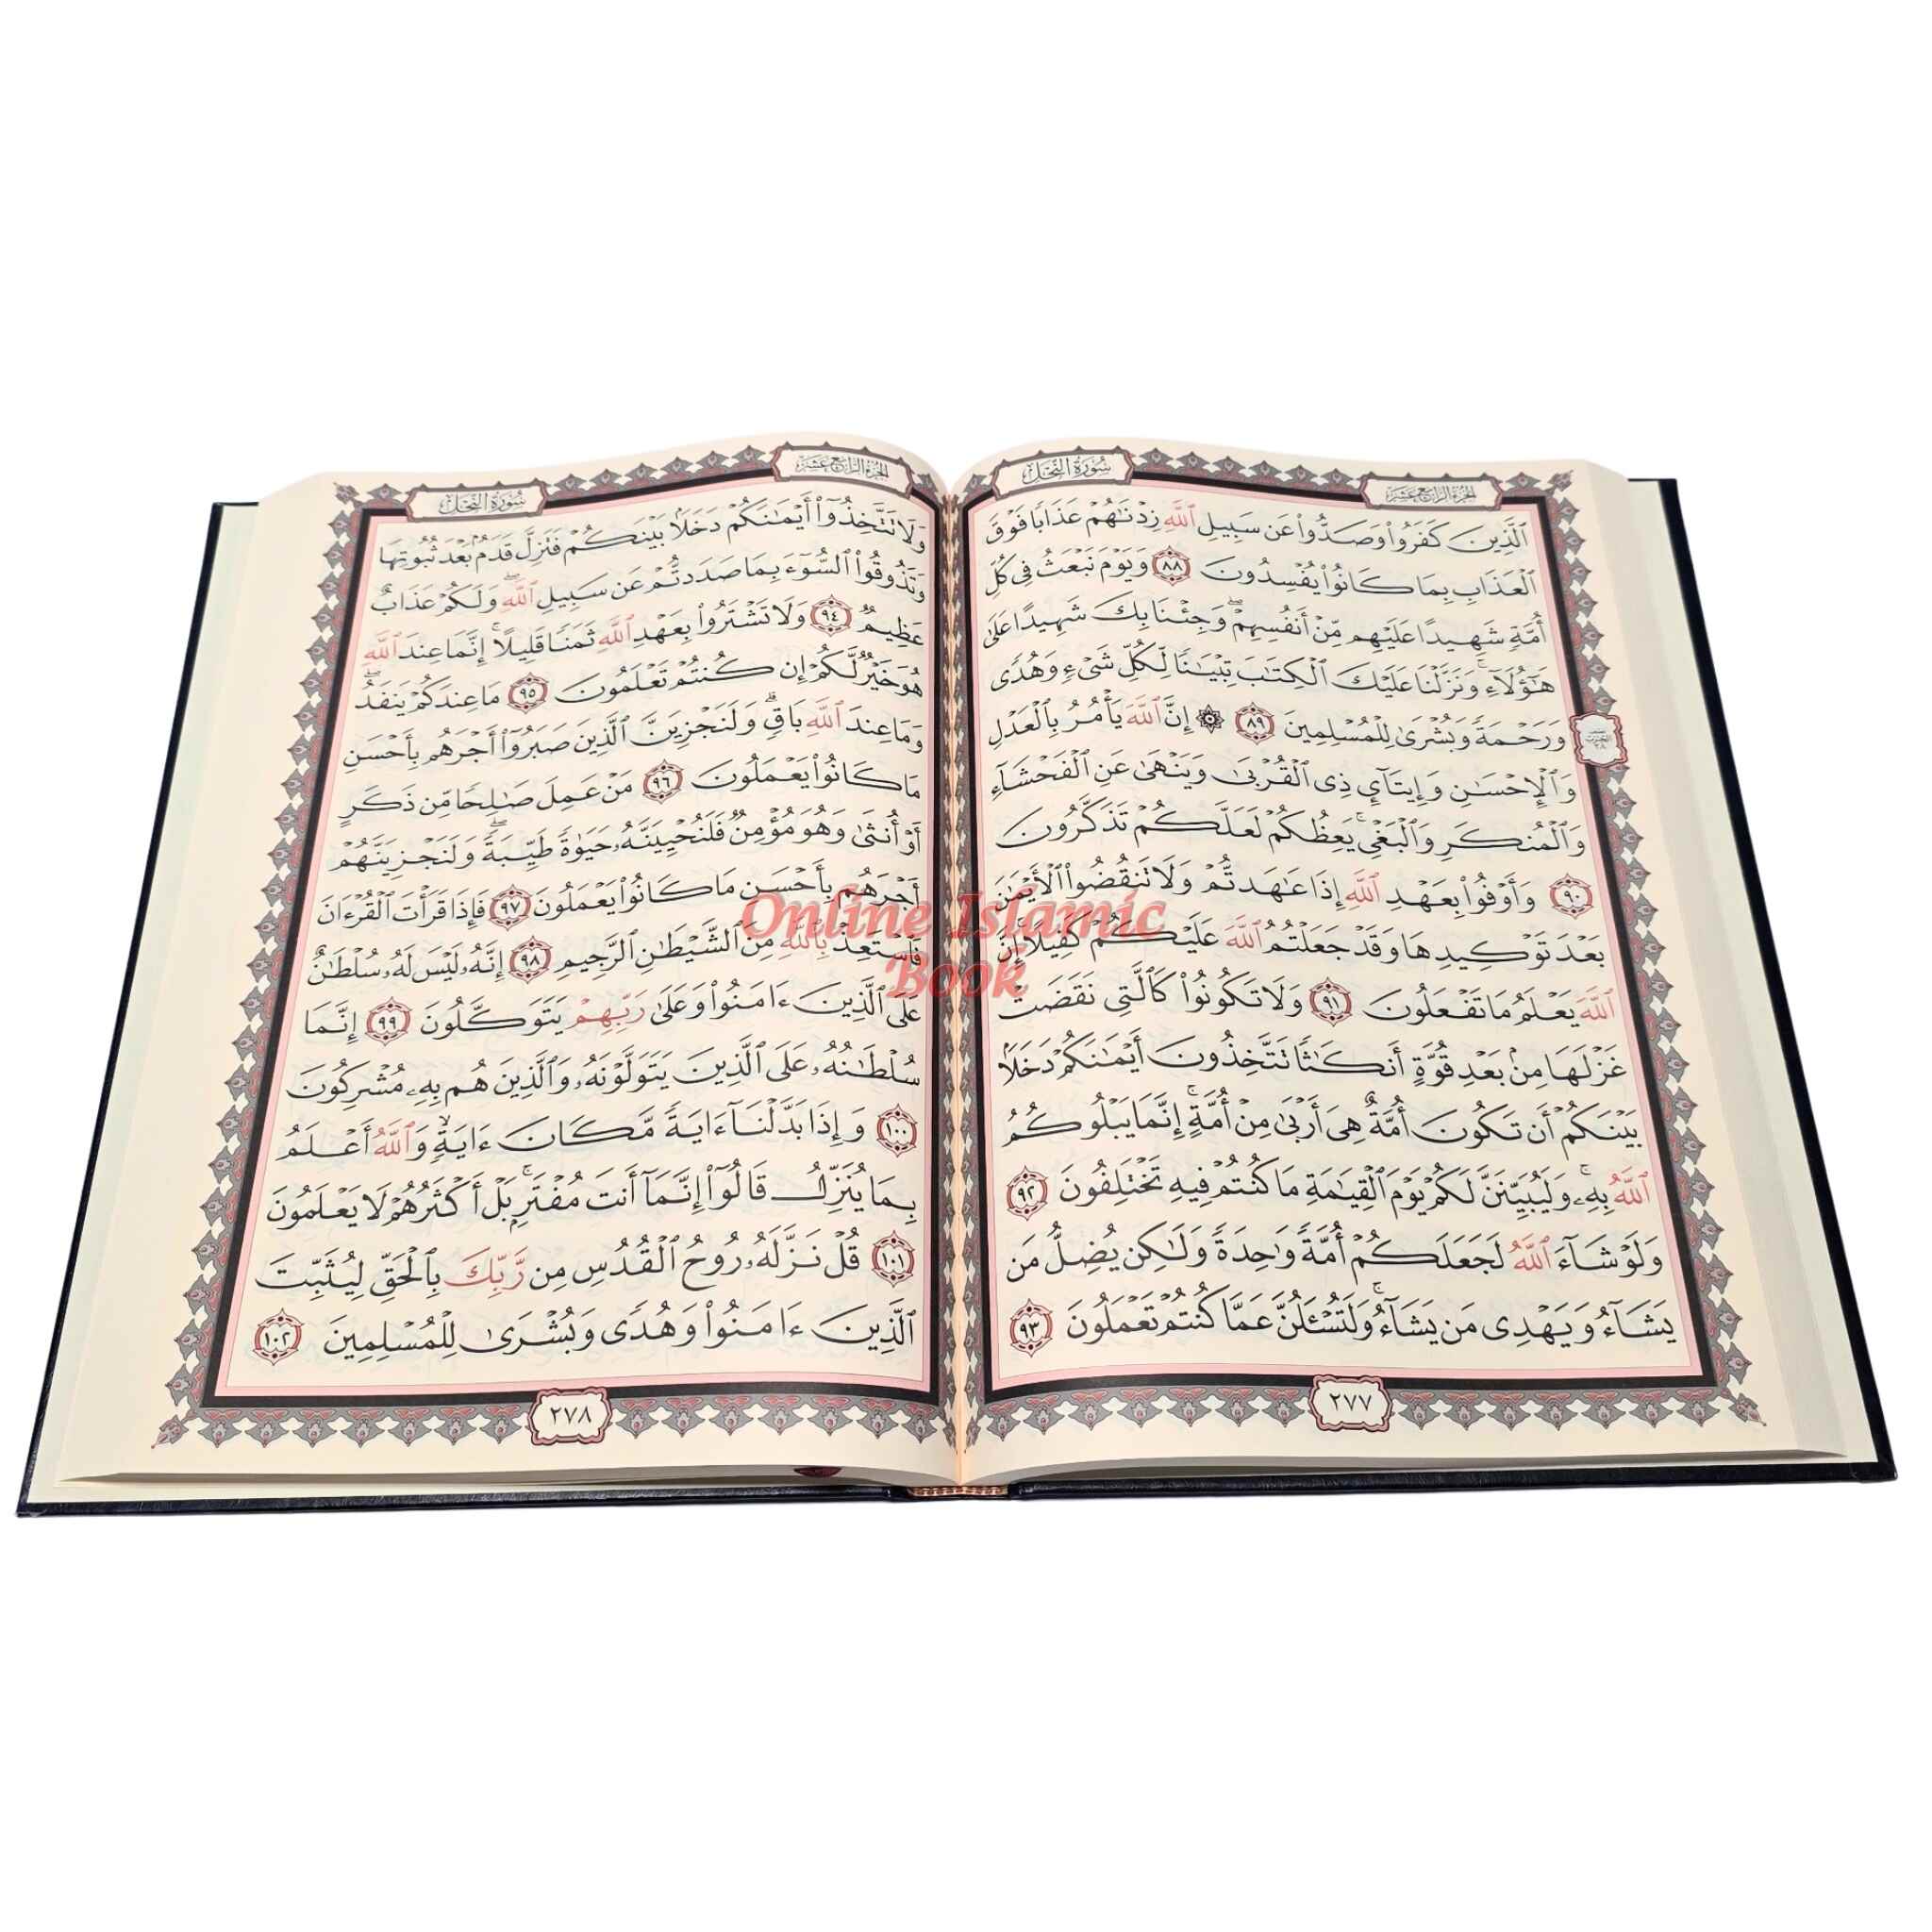 سُورَةُ النَّحۡلِ
الجُزءُ الرَّابِعَ عَشَرَ
ٱلَّذِينَ كَفَرُواْ وَصَدُّواْ عَن سَبِيلِ ٱللَّهِ زِدۡنَٰهُمۡ عَذَابٗا فَوۡقَ
ٱلۡعَذَابِ بِمَا كَانُواْ يُفۡسِدُونَ ٨٨ وَيَوۡمَ نَبۡعَثُ فِي كُلِّ
أُمَّةٖ شَهِيدًا عَلَيۡهِم مِّنۡ أَنفُسِهِمۡۖ وَجِئۡنَا بِكَ شَهِيدًا عَلَىٰ
هَٰٓؤُلَآءِۚ وَنَزَّلۡنَا عَلَيۡكَ ٱلۡكِتَٰبَ تِبۡيَٰنٗا لِّكُلِّ شَيۡءٖ وَهُدٗى
وَرَحۡمَةٗ وَبُشۡرَىٰ لِلۡمُسۡلِمِينَ ٨٩ ۞ إِنَّ ٱللَّهَ يَأۡمُرُ بِٱلۡعَدۡلِ
وَٱلۡإِحۡسَٰنِ وَإِيتَآيِٕ ذِي ٱلۡقُرۡبَىٰ وَيَنۡهَىٰ عَنِ ٱلۡفَحۡشَآءِ
وَٱلۡمُنكَرِ وَٱلۡبَغۡيِۚ يَعِظُكُمۡ لَعَلَّكُمۡ تَذَكَّرُونَ
٩٠ وَأَوۡفُواْ بِعَهۡدِ ٱللَّهِ إِذَا عَٰهَدتُّمۡ وَلَا تَنقُضُواْ ٱلۡأَيۡمَٰنَ
بَعۡدَ تَوۡكِيدِهَا وَقَدۡ جَعَلۡتُمُ ٱللَّهَ عَلَيۡكُمۡ كَفِيلًاۚ إِنَّ
ٱللَّهَ يَعۡلَمُ مَا تَفۡعَلُونَ ٩١ وَلَا تَكُونُواْ كَٱلَّتِي نَقَضَتۡ
غَزۡلَهَا مِنۢ بَعۡدِ قُوَّةٍ أَنكَٰثٗا تَتَّخِذُونَ أَيۡمَٰنَكُمۡ دَخَلَۢا
بَيۡنَكُمۡ أَن تَكُونَ أُمَّةٌ هِيَ أَرۡبَىٰ مِنۡ أُمَّةٍۚ إِنَّمَا يَبۡلُوكُمُ
ٱللَّهُ بِهِۦۚ وَلَيُبَيِّنَنَّ لَكُمۡ يَوۡمَ ٱلۡقِيَٰمَةِ مَا كُنتُمۡ فِيهِ تَخۡتَلِفُونَ ٩٢
وَلَوۡ شَآءَ ٱللَّهُ لَجَعَلَكُمۡ أُمَّةٗ وَٰحِدَةٗ وَلَٰكِن يُضِلُّ مَن
يَشَآءُ وَيَهۡدِي مَن يَشَآءُۚ وَلَتُسۡـَٔلُنَّ عَمَّا كُنتُمۡ تَعۡمَلُونَ ٩٣
٢٧٧
سُورَةُ النَّحۡلِ
الجُزءُ الرَّابِعَ عَشَرَ
وَلَا تَتَّخِذُوٓاْ أَيۡمَٰنَكُمۡ دَخَلَۢا بَيۡنَكُمۡ فَتَزِلَّ قَدَمُۢ بَعۡدَ ثُبُوتِهَا
وَتَذُوقُواْ ٱلسُّوٓءَ بِمَا صَدَدتُّمۡ عَن سَبِيلِ ٱللَّهِۖ وَلَكُمۡ عَذَابٌ
عَظِيمٞ ٩٤ وَلَا تَشۡتَرُواْ بِعَهۡدِ ٱللَّهِ ثَمَنٗا قَلِيلًاۚ إِنَّمَا عِندَ ٱللَّهِ
هُوَ خَيۡرٞ لَّكُمۡ إِن كُنتُمۡ تَعۡلَمُونَ ٩٥ مَا عِندَكُمۡ يَنفَدُۖ
وَمَا عِندَ ٱللَّهِ بَاقٖۗ وَلَنَجۡزِيَنَّ ٱلَّذِينَ صَبَرُوٓاْ أَجۡرَهُم بِأَحۡسَنِ
مَا كَانُواْ يَعۡمَلُونَ ٩٦ مَنۡ عَمِلَ صَٰلِحٗا مِّن ذَكَرٍ
أَوۡ أُنثَىٰ وَهُوَ مُؤۡمِنٞ فَلَنُحۡيِيَنَّهُۥ حَيَوٰةٗ طَيِّبَةٗۖ وَلَنَجۡزِيَنَّهُمۡ
أَجۡرَهُم بِأَحۡسَنِ مَا كَانُواْ يَعۡمَلُونَ ٩٧ فَإِذَا قَرَأۡتَ ٱلۡقُرۡءَانَ
فَٱسۡتَعِذۡ بِٱللَّهِ مِنَ ٱلشَّيۡطَٰنِ ٱلرَّجِيمِ ٩٨ إِنَّهُۥ لَيۡسَ لَهُۥ سُلۡطَٰنٌ
عَلَى ٱلَّذِينَ ءَامَنُواْ وَعَلَىٰ رَبِّهِمۡ يَتَوَكَّلُونَ ٩٩ إِنَّمَا
سُلۡطَٰنُهُۥ عَلَى ٱلَّذِينَ يَتَوَلَّوۡنَهُۥ وَٱلَّذِينَ هُم بِهِۦ مُشۡرِكُونَ
١٠٠ وَإِذَا بَدَّلۡنَآ ءَايَةٗ مَّكَانَ ءَايَةٖ وَٱللَّهُ أَعۡلَمُ
بِمَا يُنَزِّلُ قَالُوٓاْ إِنَّمَآ أَنتَ مُفۡتَرِۭۚ بَلۡ أَكۡثَرُهُمۡ لَا يَعۡلَمُونَ
١٠١ قُلۡ نَزَّلَهُۥ رُوحُ ٱلۡقُدُسِ مِن رَّبِّكَ بِٱلۡحَقِّ لِيُثَبِّتَ
ٱلَّذِينَ ءَامَنُواْ وَهُدٗى وَبُشۡرَىٰ لِلۡمُسۡلِمِينَ ١٠٢
٢٧٨
Online Islamic
Book